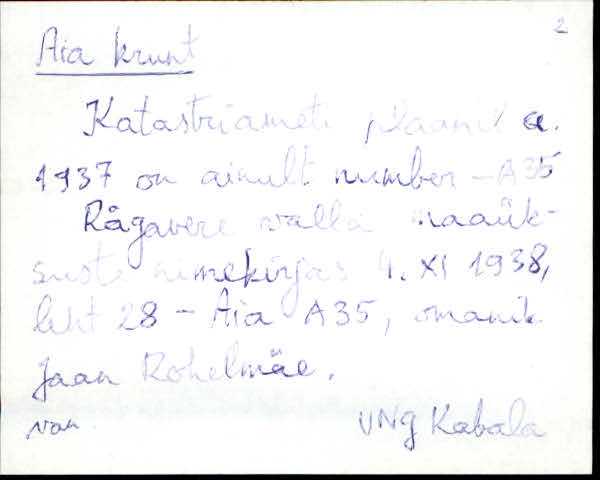 2
Aia krunt
Katastriameti plaanil a.
1937 on ainult number - A35
Rägavere valla maaük-
suste nimekirjas 4. XI 1938,
leht 28 - Aia A35, omanik
Jaan Rohelmäe.
VNg Kabala